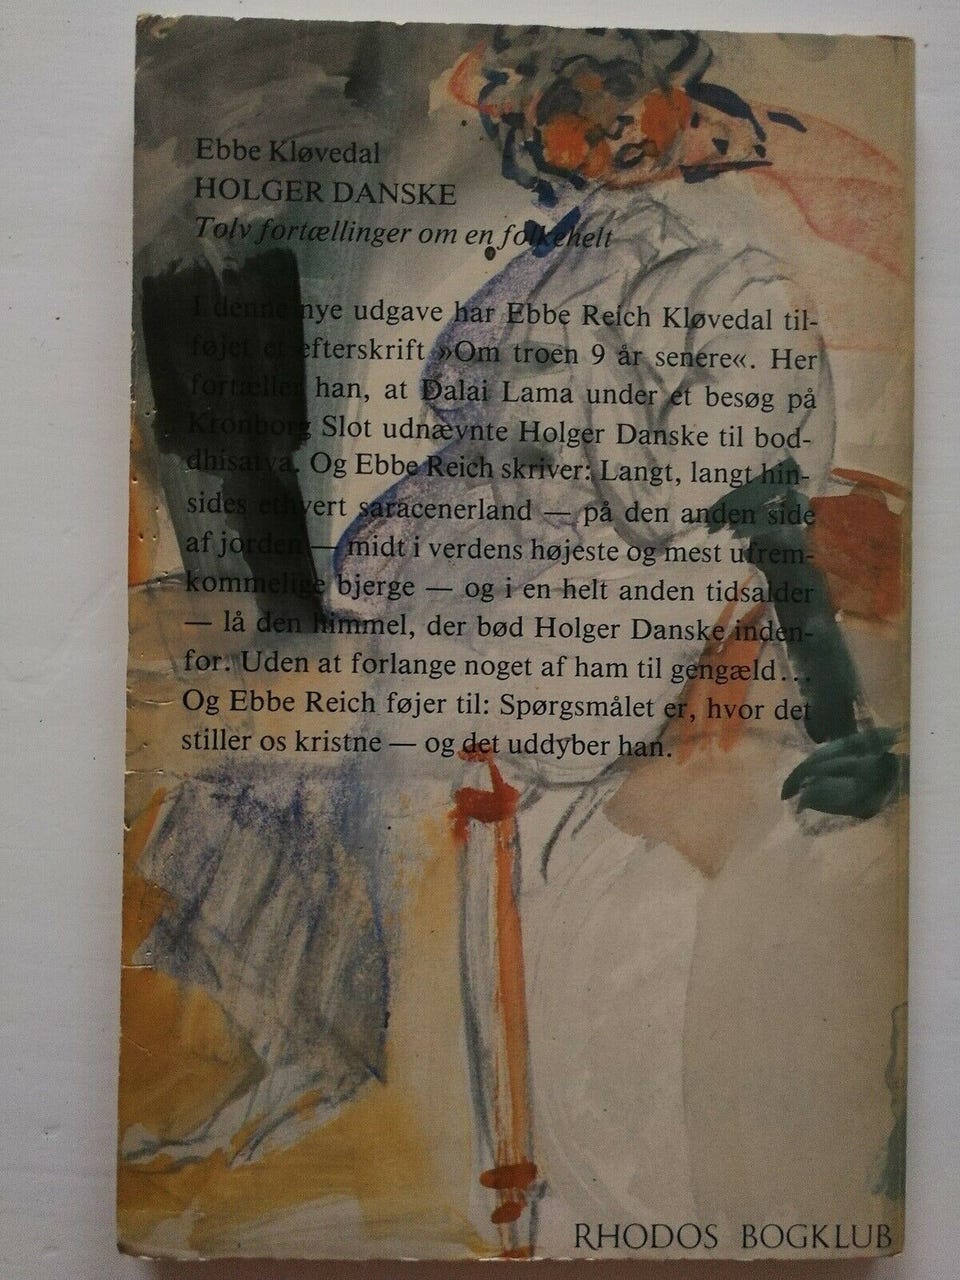 Ebbe Kløvedal
HOLGER DANSKE
Tolv fortællinger om en folkehelt
I denne nye udgave har Ebbe Reich Kløvedal til-
føjet et efterskrift »Om troen 9 år senere«. Her
fortæller han, at Dalai Lama under et besøg på
Kronborg Slot udnævnte Holger Danske til bod-
dhisatva. Og Ebbe Reich skriver: Langt, langt hin-
sides ethvert saracenerland — på den anden side
af jorden — midt i verdens højeste og mest ufrem-
kommelige bjerge — og i en helt anden tidsalder
— lå den himmel, der bød Holger Danske inden-
for. Uden at forlange noget af ham til gengæld...
Og Ebbe Reich føjer til: Spørgsmålet er, hvor det
stiller os kristne — og det uddyber han.
RHODOS BOGKLUB